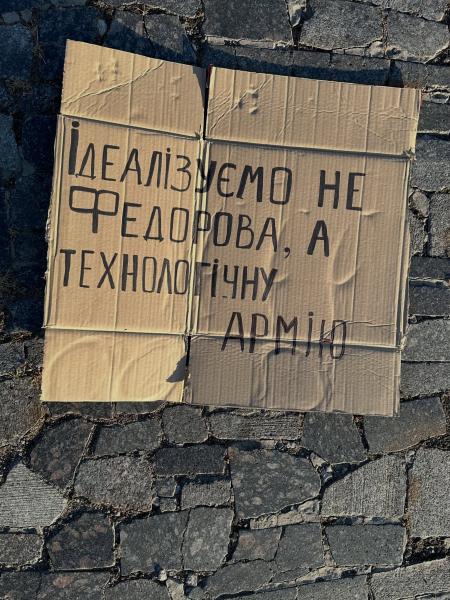 Ідеалізуємо не
Федорова, а
технологічну
армію